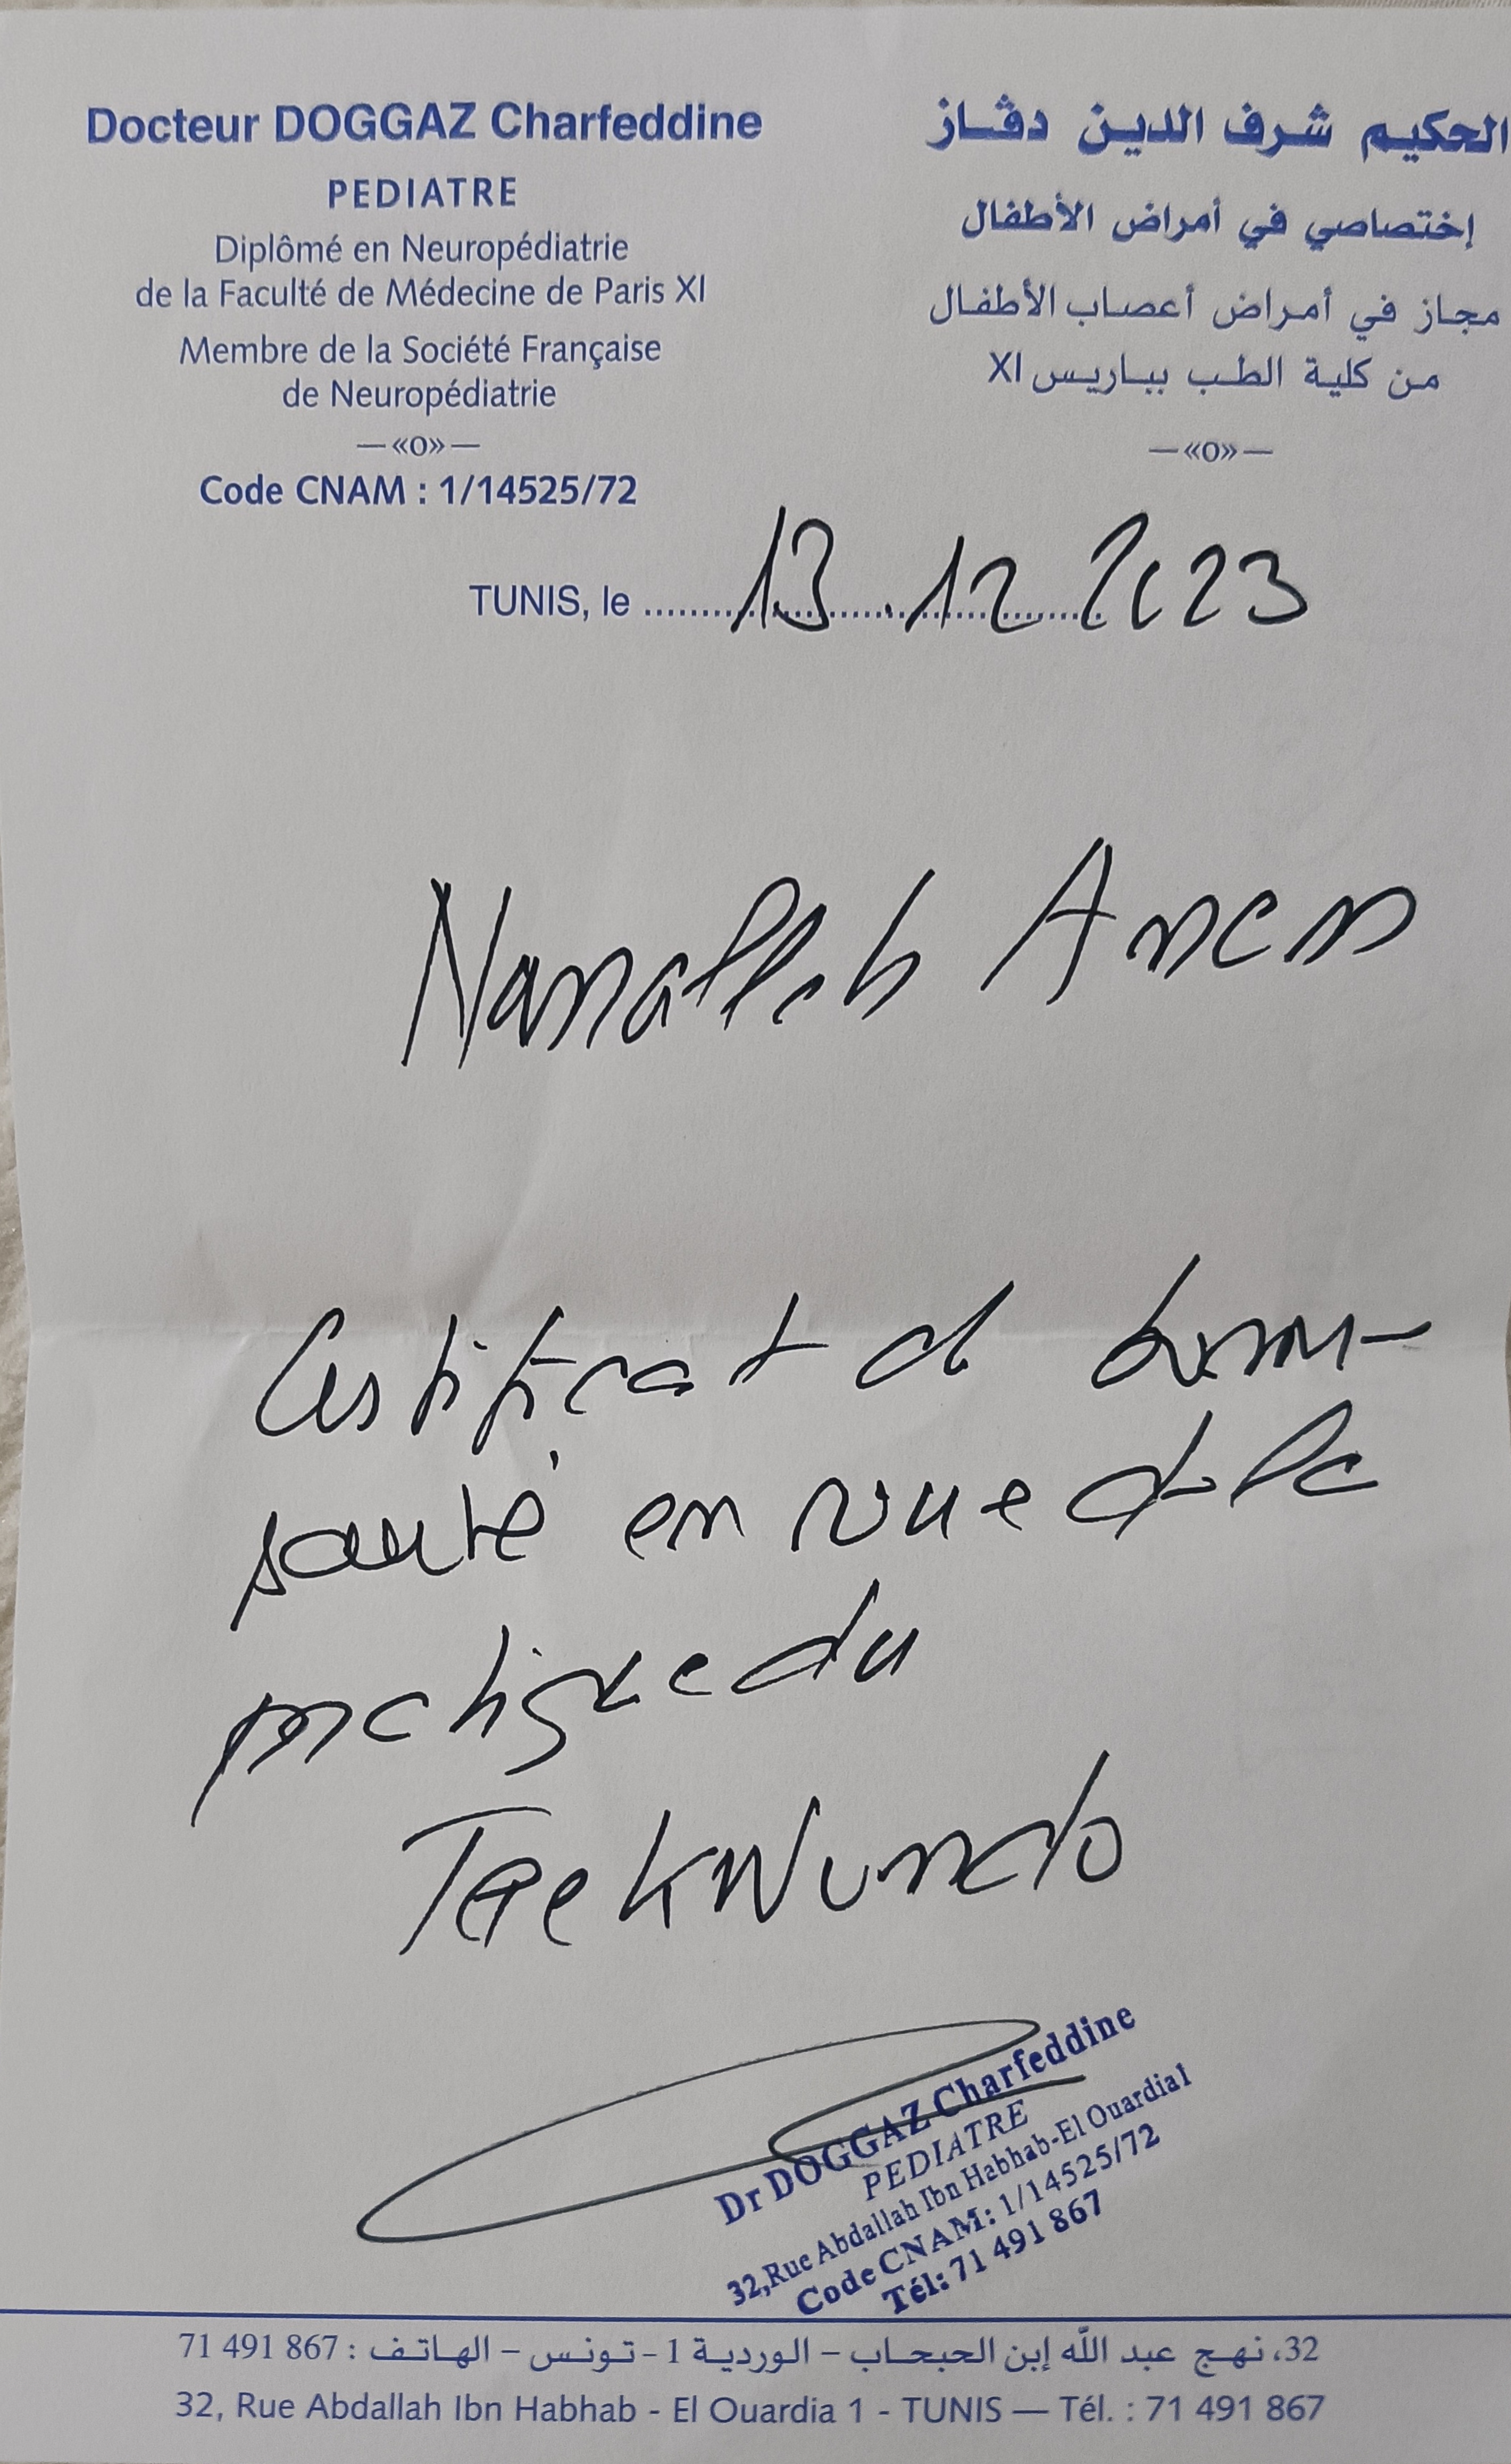 Docteur DOGGAZ Charfeddine
PEDIATRE
Diplômé en Neuropédiatrie
de la Faculté de Médecine de Paris XI
Membre de la Société Française
de Neuropédiatrie
—«O»—
Code CNAM : 1/14525/72
الحكيم شرف الدين دڤاز
إختصاصي في أمراض الأطفال
مجاز في أمراض أعصاب الأطفال
من كلية الطب بباريس XI
—«O»—
TUNIS, le 13.12 2023
Certificat de bonne
santé en vue de la
pratique du
TaekWundo
Dr DOGGAZ Charfeddine
PEDIATRE
32,Rue Abdallah Ibn Habhab-El Ouardia1
Code CNAM: 1/14525/72
Tél: 71 491 867
32، نهج عبد الله إبن الحبحاب – الوردية 1 - تونس – الهاتف : 867 491 71
32, Rue Abdallah Ibn Habhab - El Ouardia 1 - TUNIS — Tél. : 71 491 867